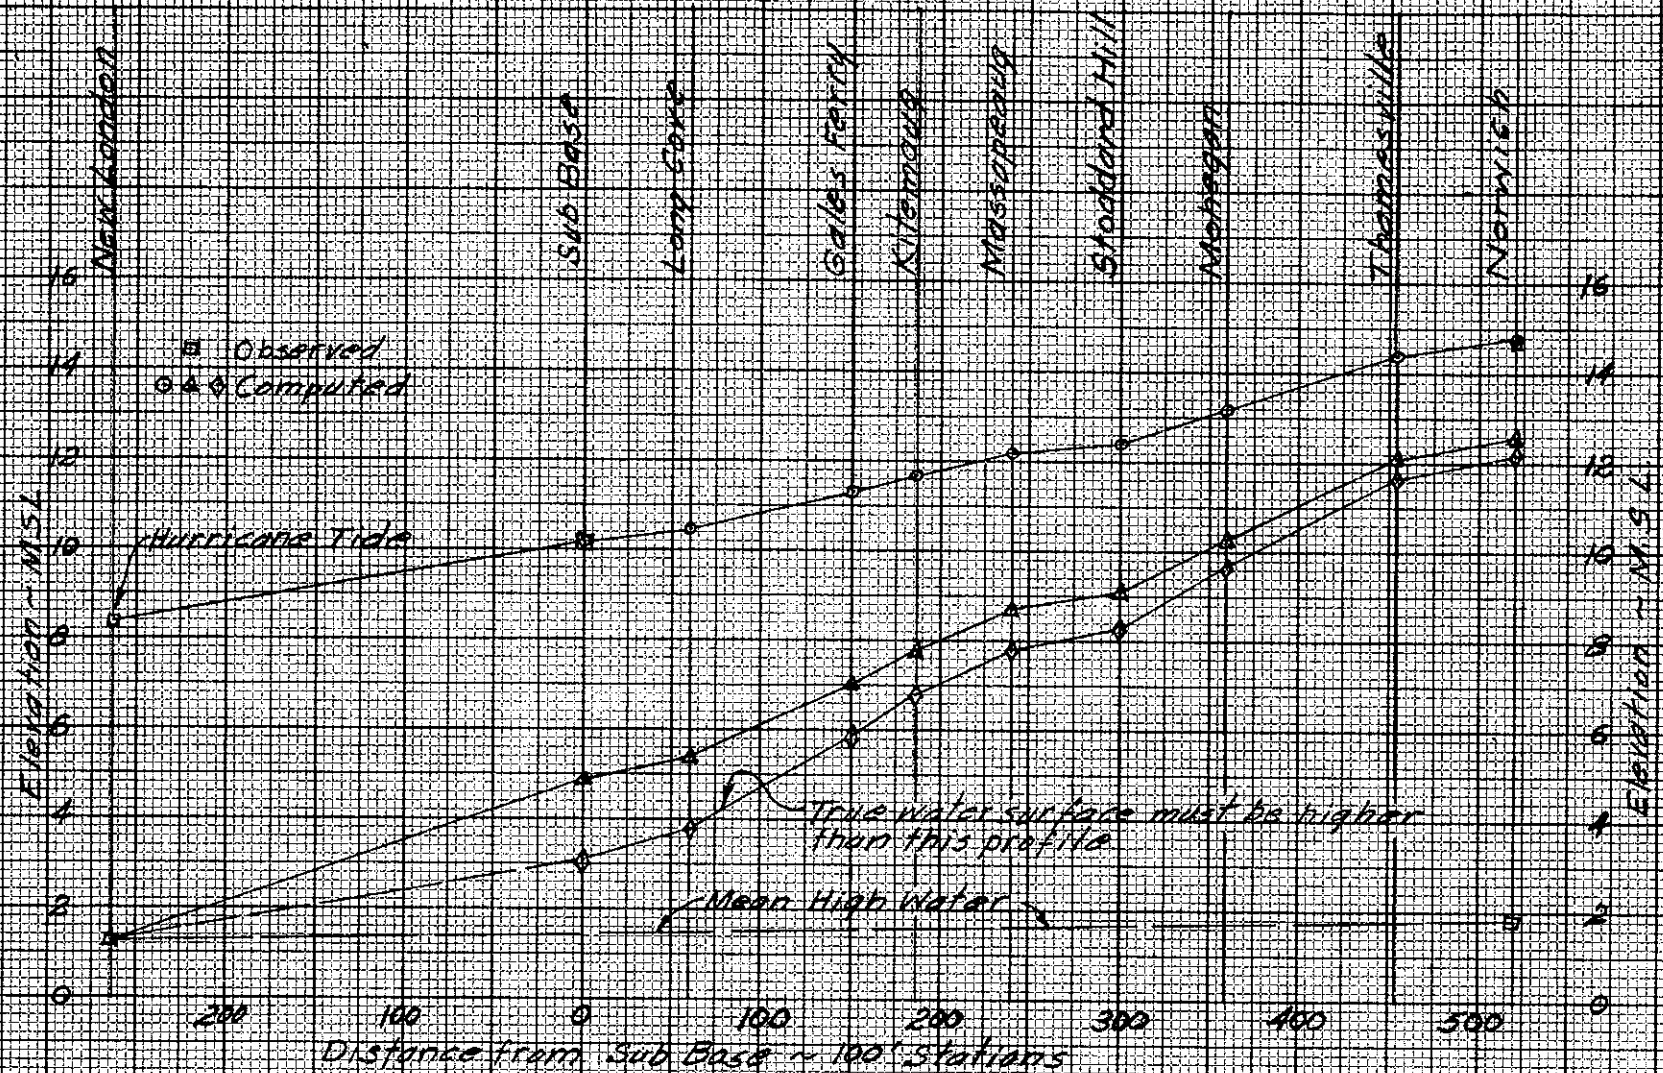 New London
Sub Base
Long Cove
Gales Ferry
Kitemaug
Massapeaug
Stoddard Hill
Mohegan
Thamesville
Norwich
16
14
12
10
8
6
4
2
0
Elevation ~ MSL
Observed
Computed
Hurricane Tide
True water surface must be higher
than this profile
Mean High Water
16
14
12
10
8
6
4
2
0
Elevation ~ M.S.L.
200 100 0 100 200 300 400 500
Distance from Sub Base ~ 100' Stations